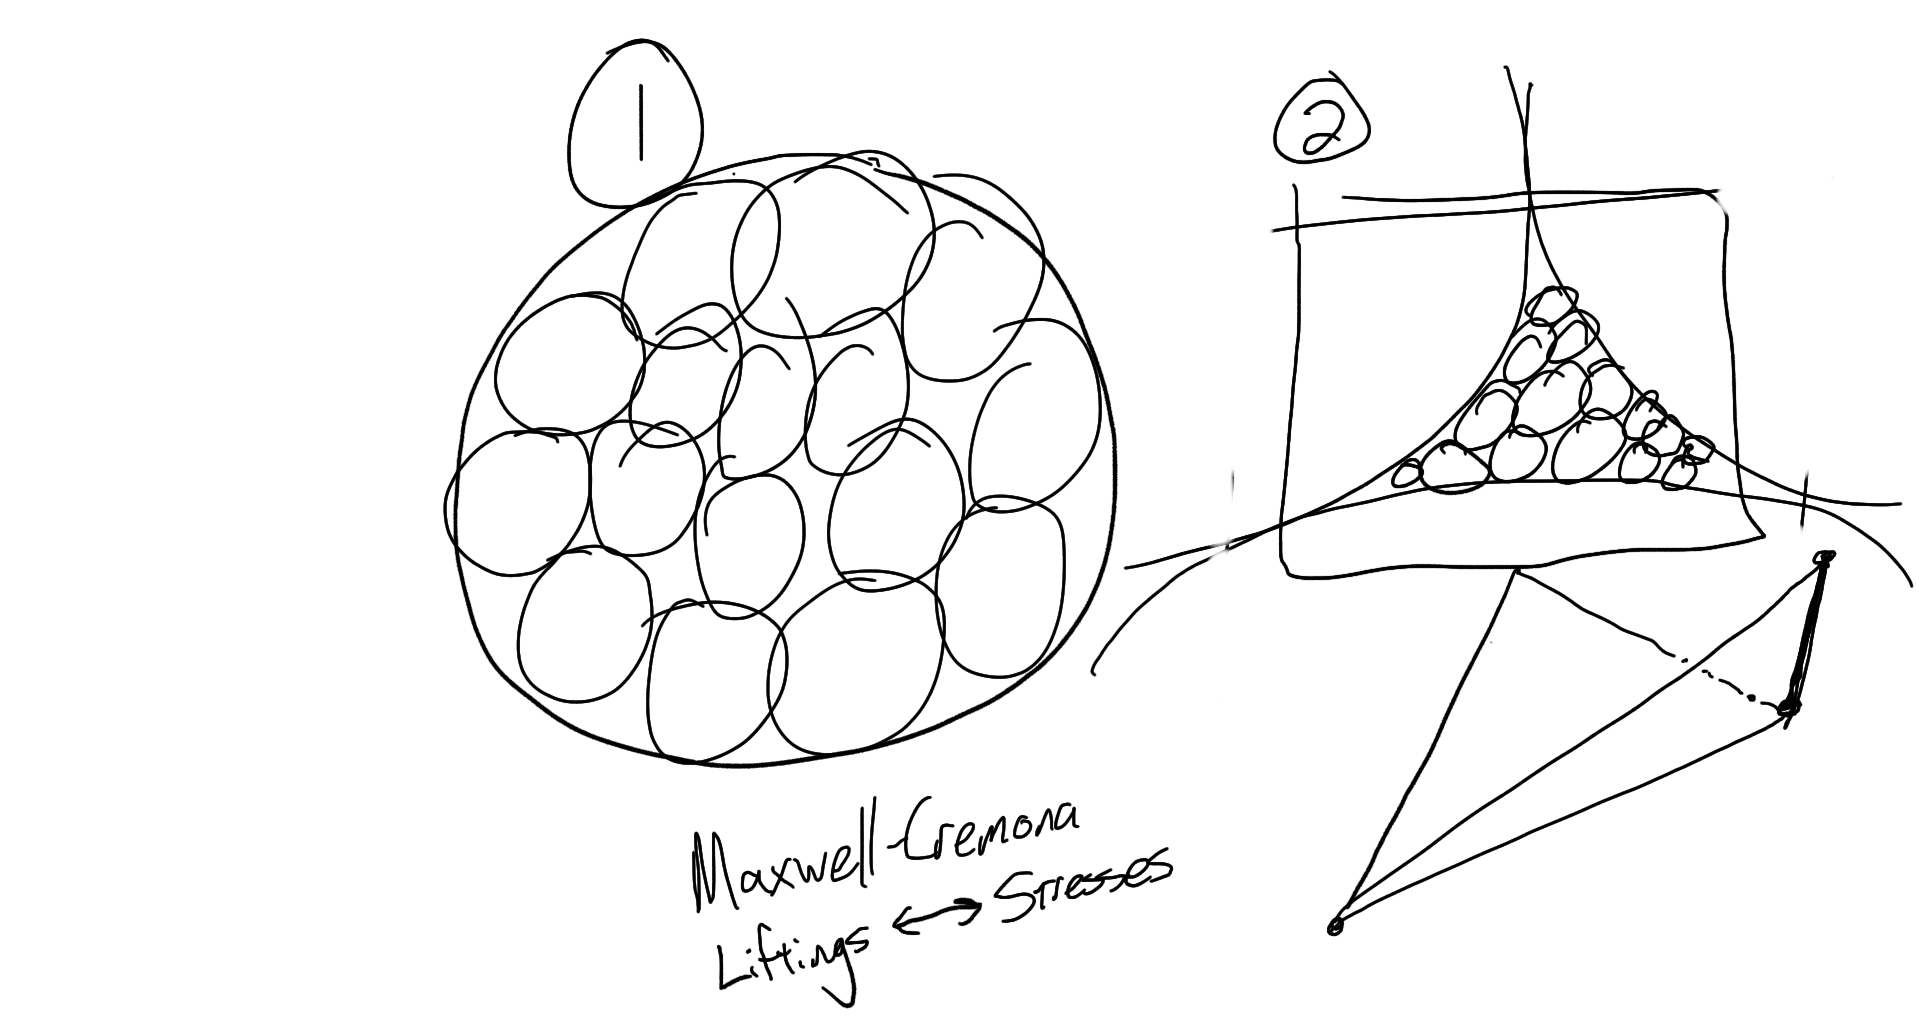 1
2
Maxwell-Cremona
Liftings ↔ Stresses